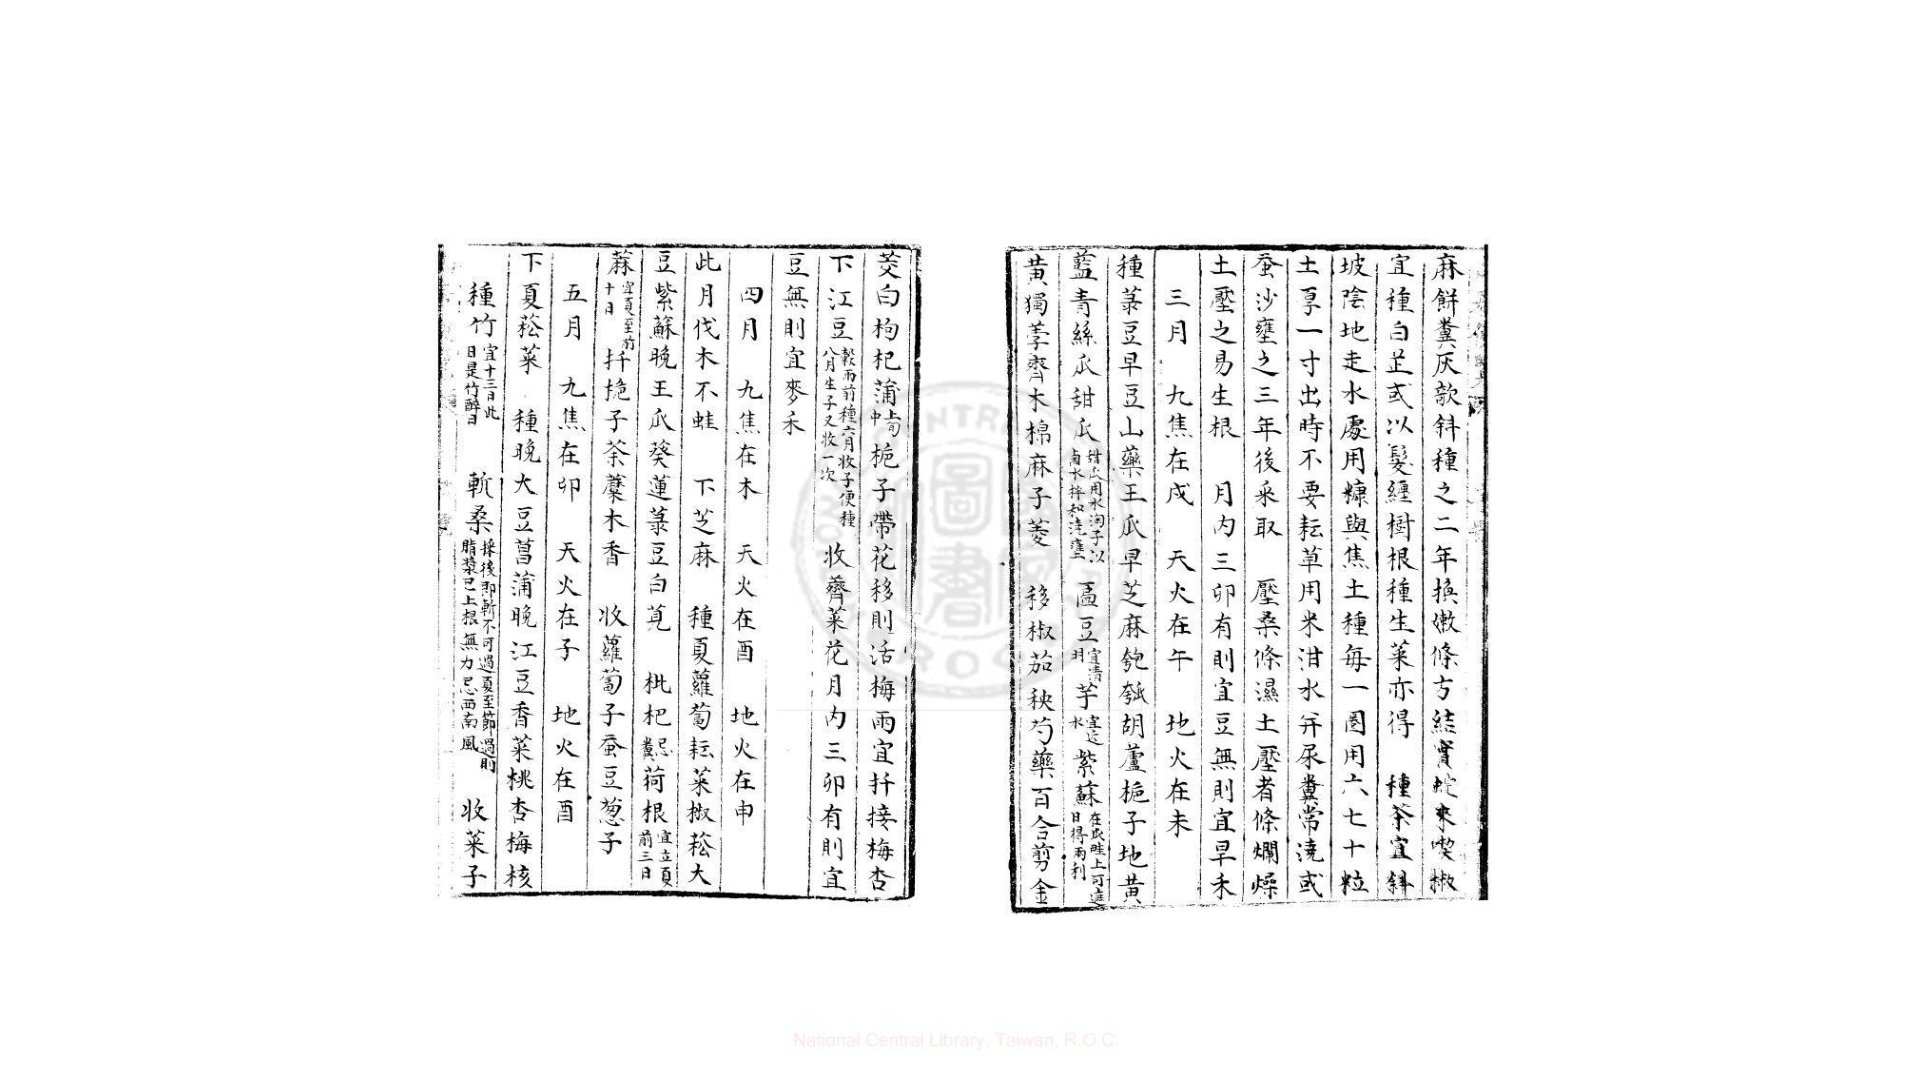 麻餅糞灰欹斜種之二年換嫩條方結實蛇來喫椒
宜種白芷或以髮纏樹根種生菜亦得　種茶宜斜
坡陰地走水處用糠與焦土種每一圈用六七十粒
土厚一寸出時不要耘草用米泔水并尿糞常澆或
蚕沙壅之三年後采取　壓桑條濕土壓者條爛燥
土壓之易生根　月内三卯有則宜豆無則宜早禾
三月　九焦在戌　天火在午　地火在未
種菉豆早豆山藥王瓜早芝麻匏瓠胡蘆梔子地黄
藍青絲瓜甜瓜甜瓜用水洵子以鹵水拌和澆壅　匾豆宜清明　芋宜近水　紫蘇在瓜畦上可遮日得兩利
黄獨荸薺木棉麻子菱　移椒茄秧芍藥百合剪金
茭白枸杞蒲上旬中梔子帶花移則活梅雨宜扦接梅杏
下江豆穀雨前種六月收子便種八月生子又收一次　收薺菜花月内三卯有則宜
豆無則宜麥禾
四月　九焦在木　天火在酉　地火在申
此月伐木不蛀　下芝麻　種夏蘿蔔耘菜椒菘大
豆紫蘇晚王瓜葵蓮菉豆白莧　枇杷忌糞荷根宜立夏前三日
蔴宜夏至前十日　扦梔子荼蘼木香　收蘿蔔子蚕豆葱子
五月　九焦在卯　天火在子　地火在酉
下夏菘菜　種晚大豆菖蒲晚江豆香菜桃杏梅核
種竹宜十三日此日是竹醉日　斬桑採後即斬不可過夏至節過則脂漿已上根無力忌西南風　收菜子
National Central Library, Taiwan, R.O.C.